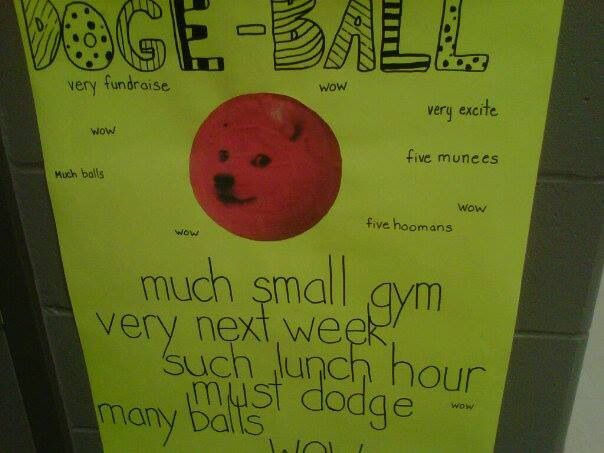 DOGE-BALL
very fundraise
wow
very excite
wow
five munees
Much balls
wow
five hoomans
wow
much small gym
very next week
such lunch hour
must dodge
wow
many balls
wow